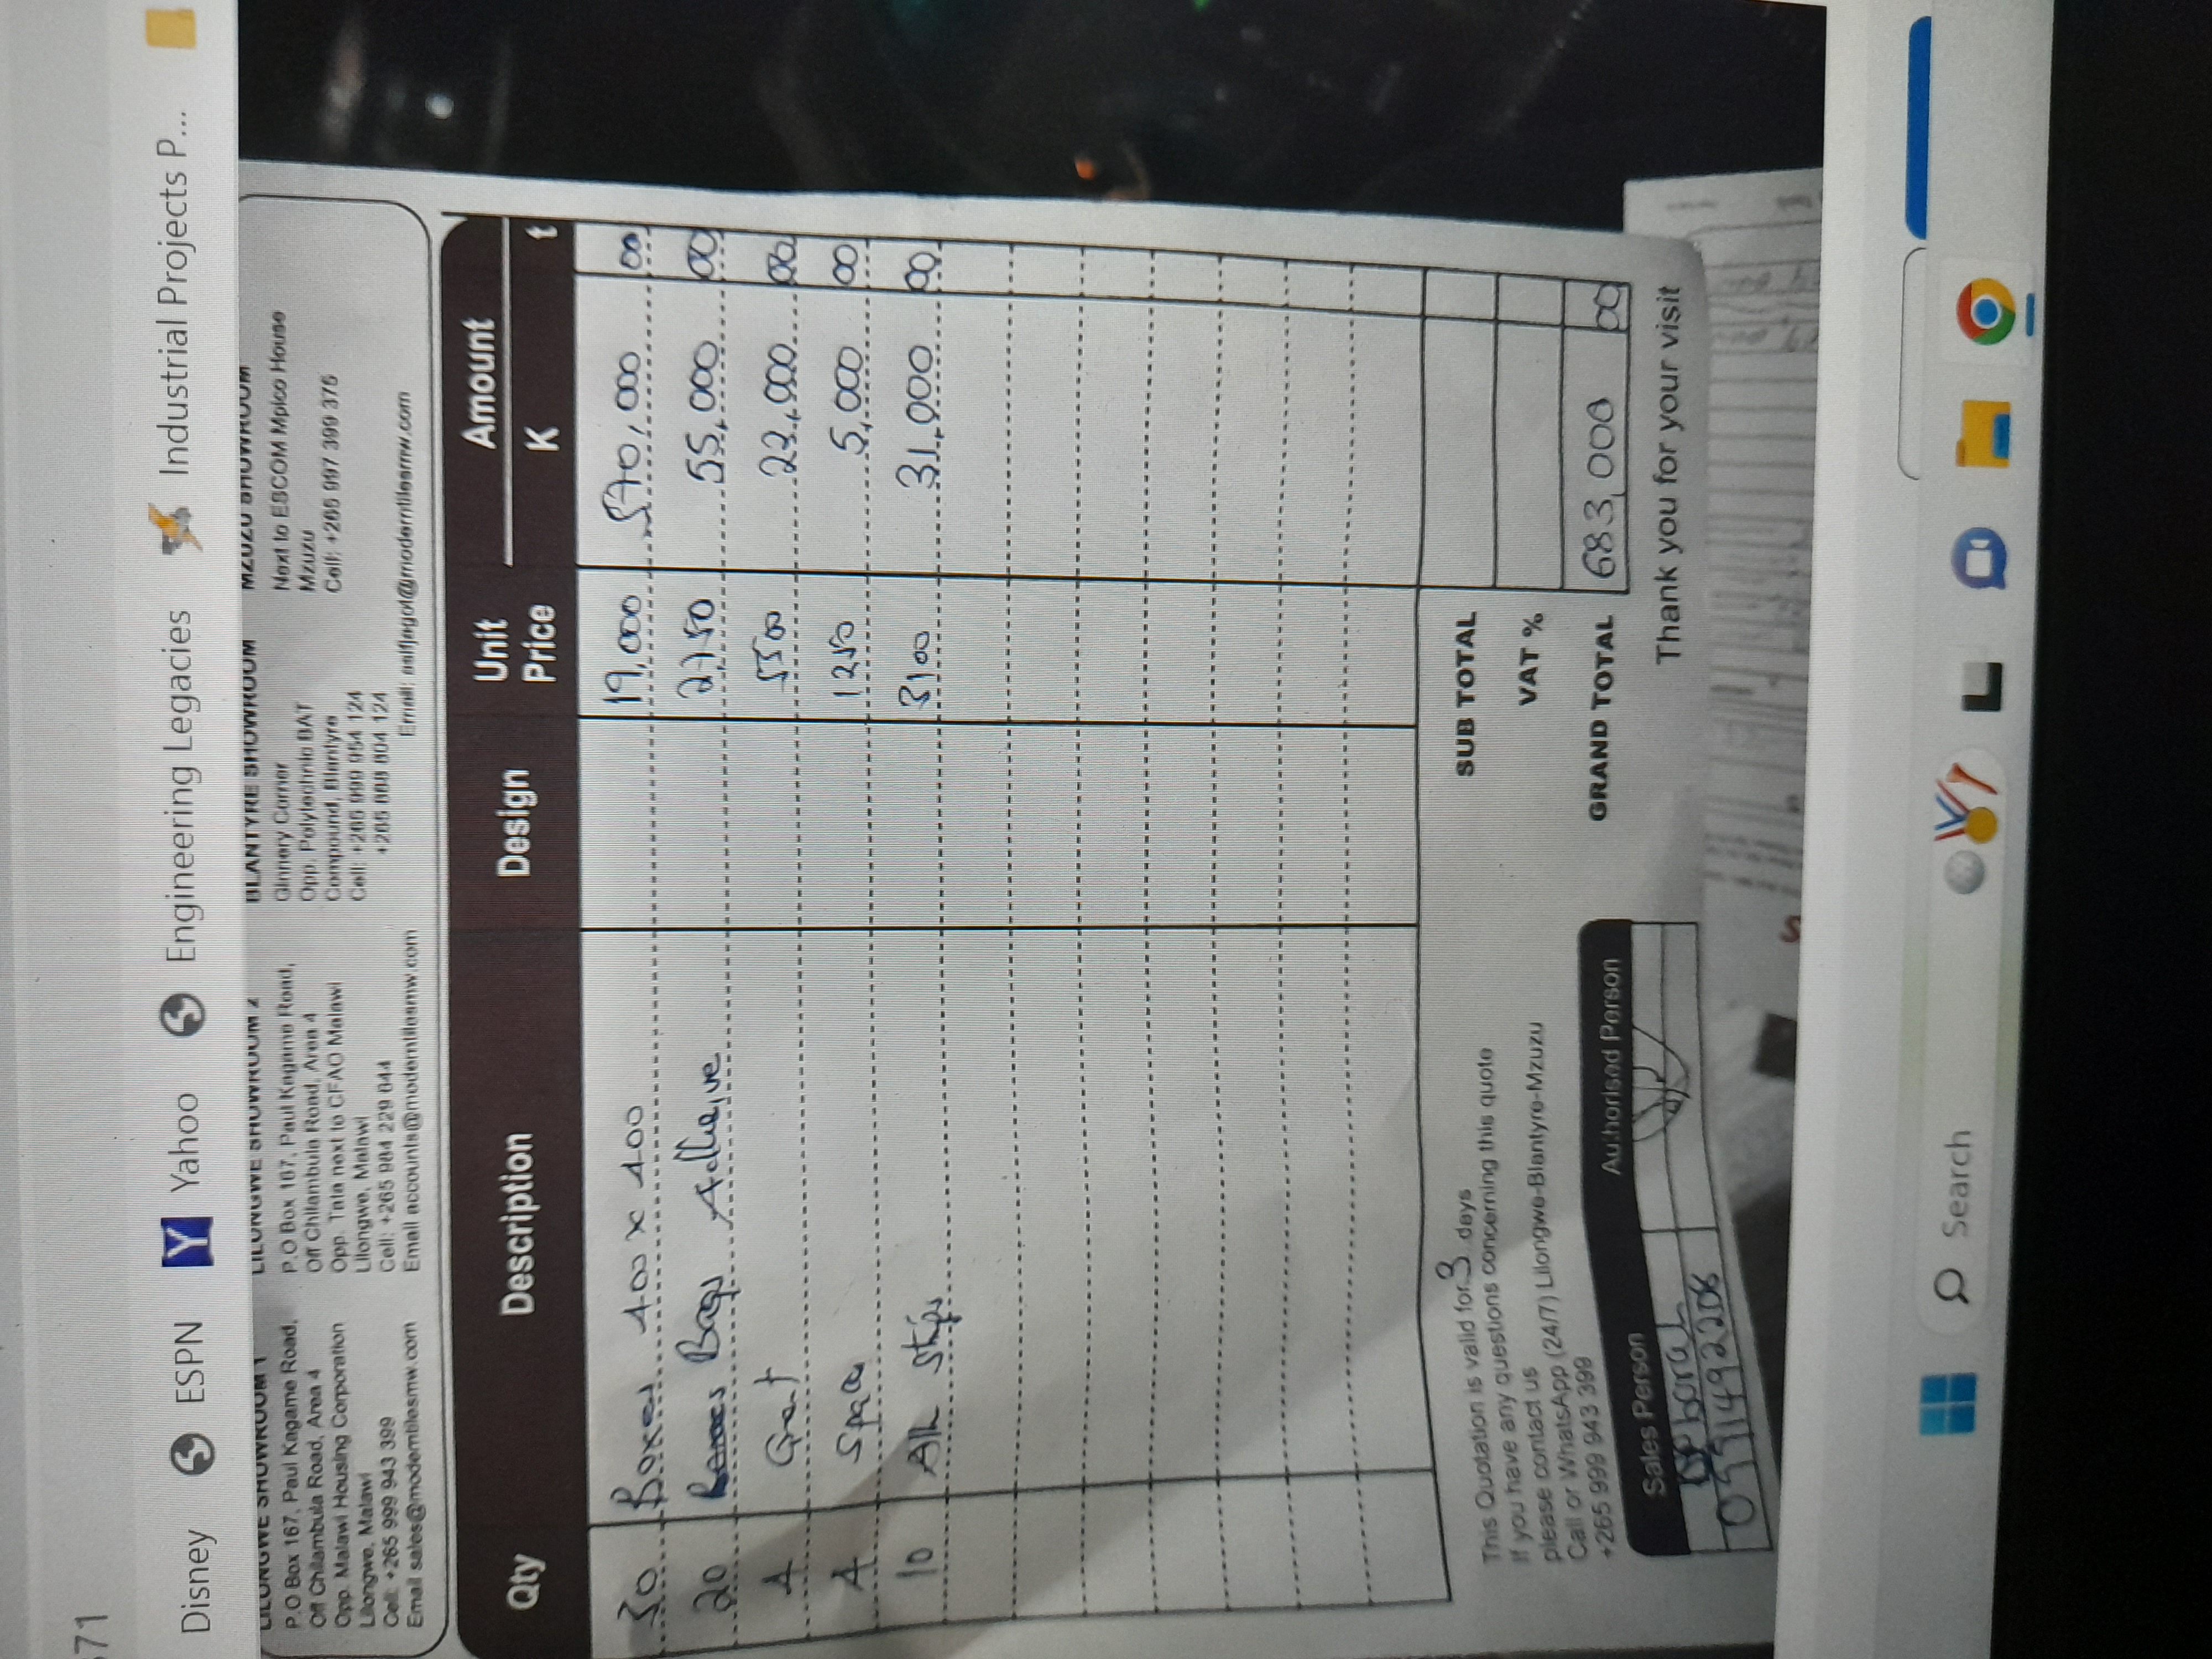 371
Disney ESPN Yahoo Engineering Legacies Industrial Projects P...
LILONGWE SHOWROOM 1
P.O Box 167, Paul Kagame Road,
Off Chilambula Road, Area 4
Opp. Malawi Housing Corporation
Lilongwe, Malawi
Cell: +265 999 943 399
Email sales@moderntilesmw.com
LILONGWE SHOWROOM 2
P.O Box 167, Paul Kagame Road,
Off Chilambula Road, Area 4
Opp. Tata next to CFAO Malawi
Lilongwe, Malawi
Cell: +265 984 229 644
Email accounts@moderntilesmw.com
BLANTYRE SHOWROOM
Ginnery Corner
Opp. Polytechnic BAT
Compound, Blantyre
Cell: +265 999 954 124
+265 888 804 124
MZUZU SHOWROOM
Next to ESCOM Mpico House
Mzuzu
Cell: +265 997 399 375
Email: asifjagot@moderntilesmw.com
Qty Description Design Unit Price Amount K t
30 Boxes 400 x 400 19,000 570,000 00
20 Bags Adheive 2,750 55,000 00
4 Grout 5500 22,000 00
4 Spacer 1250 5,000 00
10 All Strips 3100 31,000 00
This Quotation is valid for 3 days
If you have any questions concerning this quote
please contact us
Call or WhatsApp (24/7) Lilongwe-Blantyre-Mzuzu
+265 999 943 399
SUB TOTAL
VAT %
GRAND TOTAL 683,000 00
Sales Person Authorised Person
Deborah
0991492208
Thank you for your visit
Search